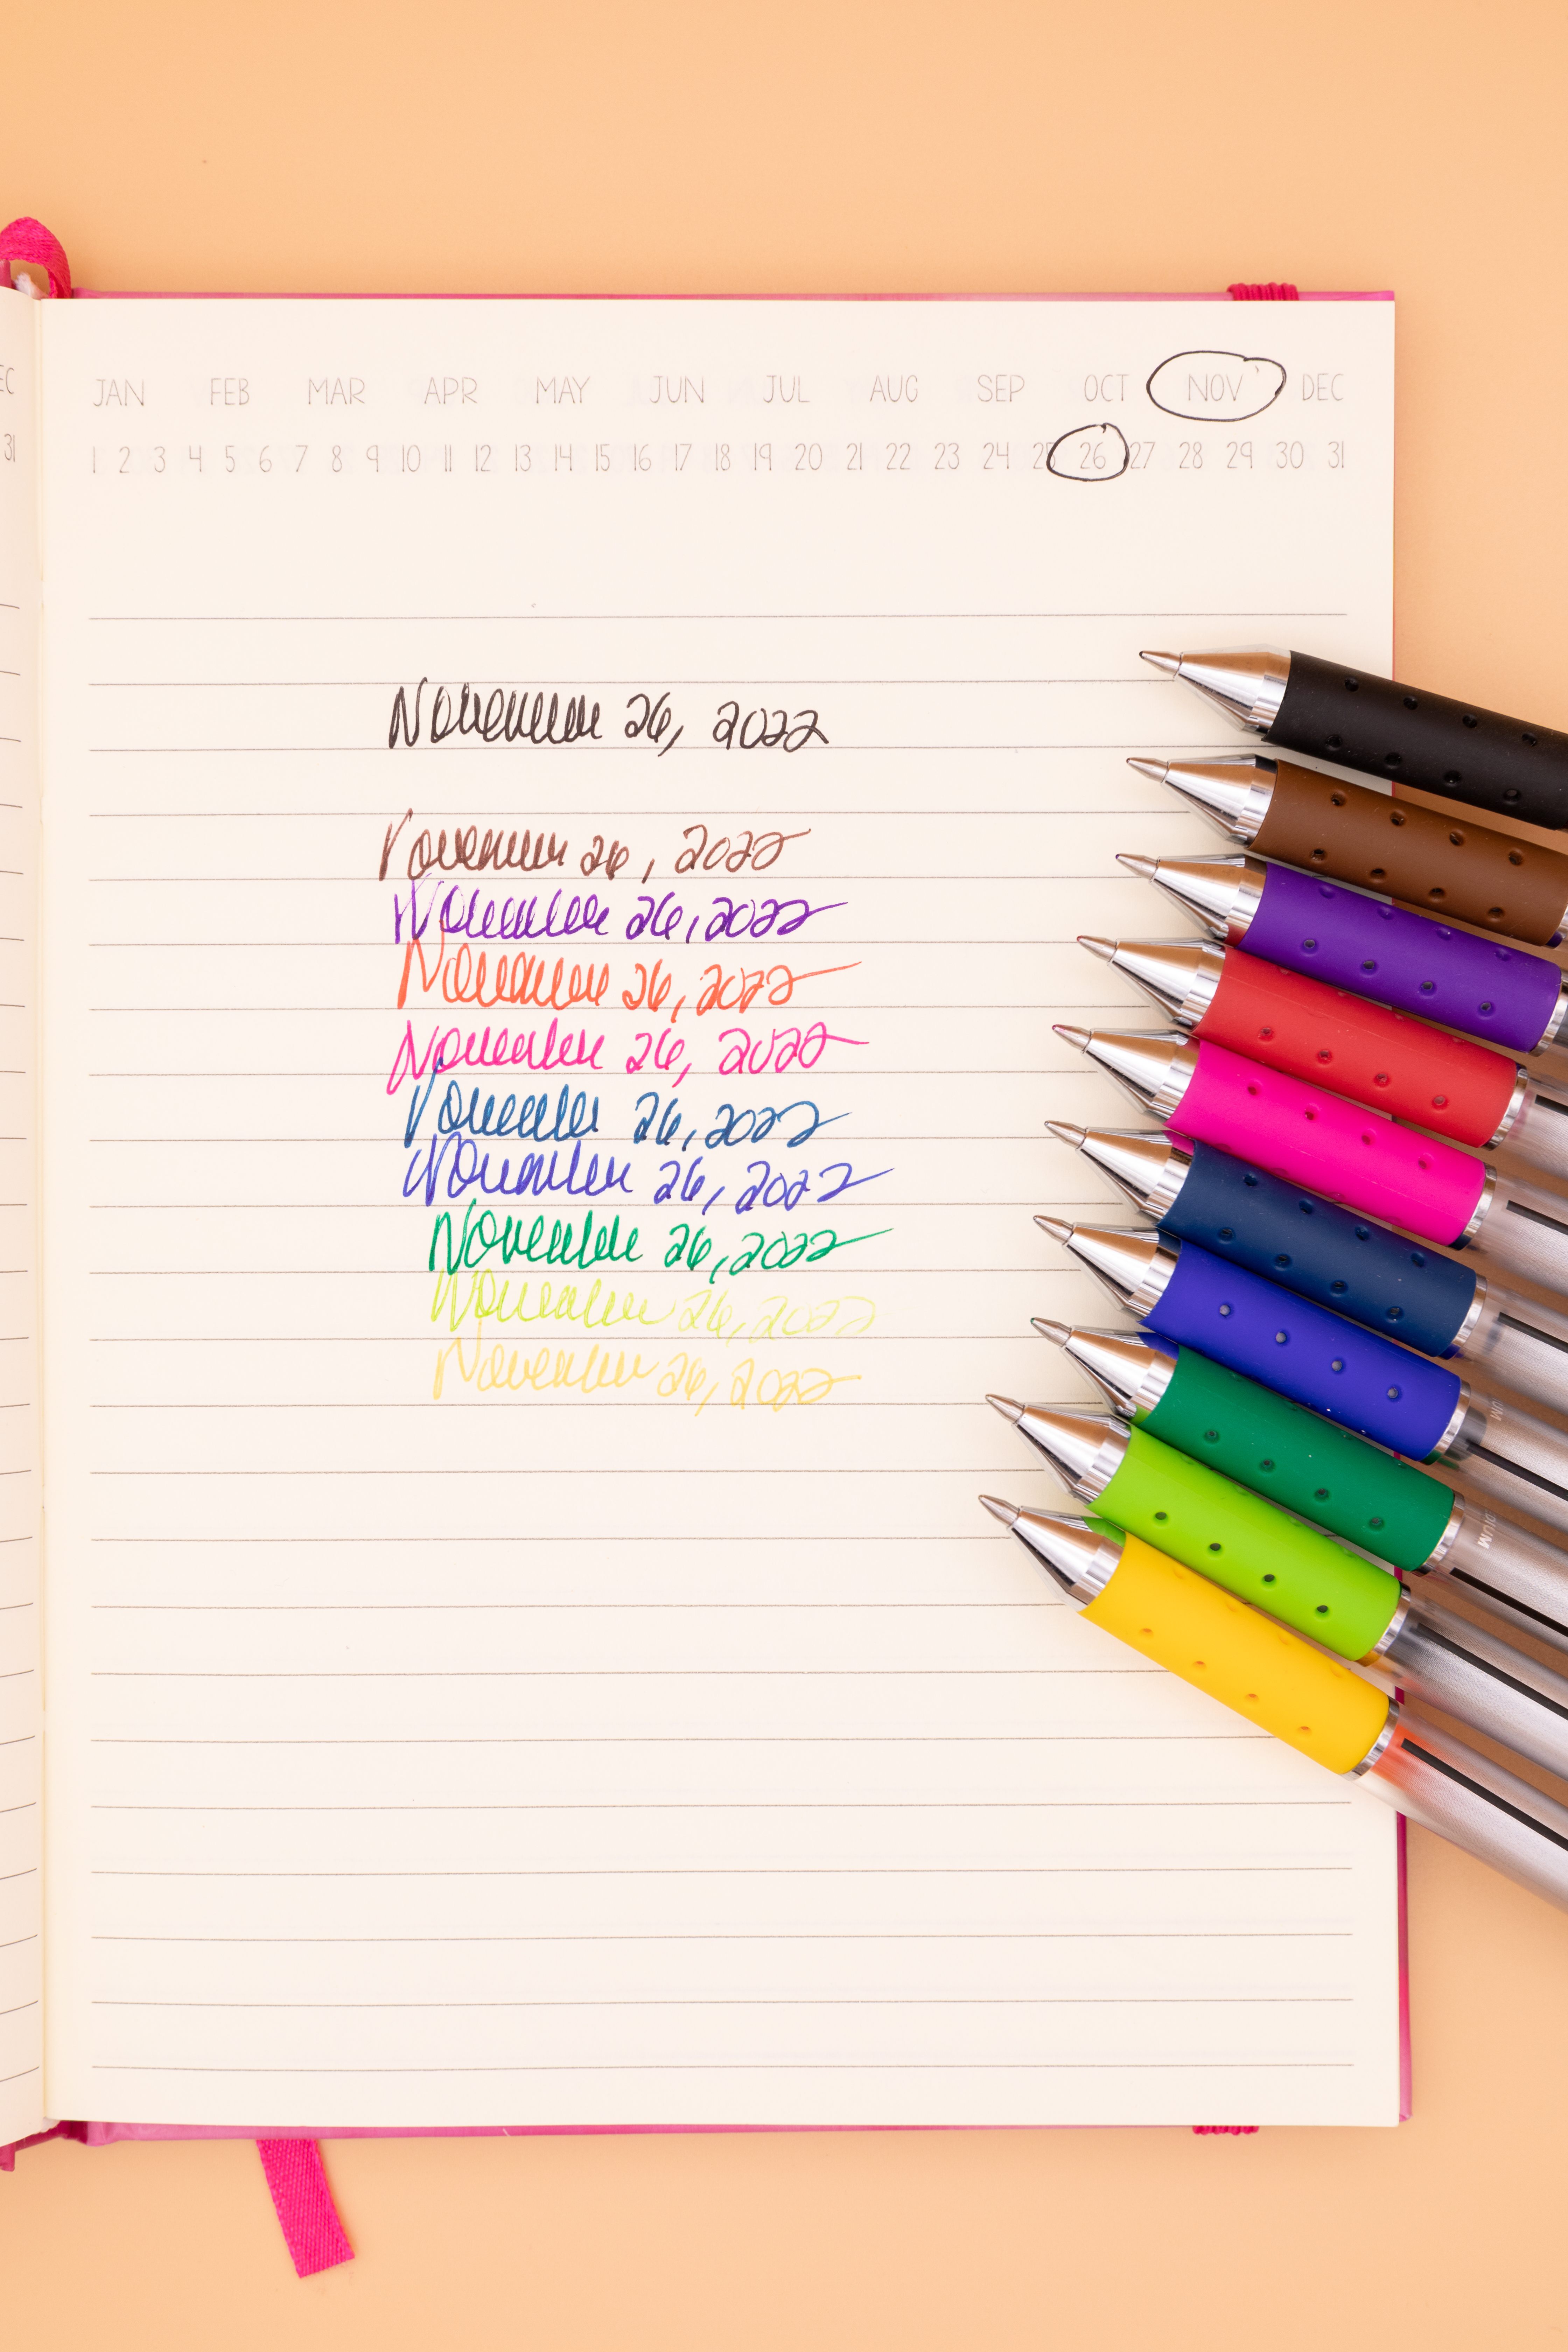 EC
31
JAN FEB MAR APR MAY JUN JUL AUG SEP OCT NOV DEC
1 2 3 4 5 6 7 8 9 10 11 12 13 14 15 16 17 18 19 20 21 22 23 24 25 26 27 28 29 30 31
November 26, 2022
November 26, 2022
November 26, 2022
November 26, 2022
November 26, 2022
November 26, 2022
November 26, 2022
November 26, 2022
November 26, 2022
November 26, 2022
UM
DIUM